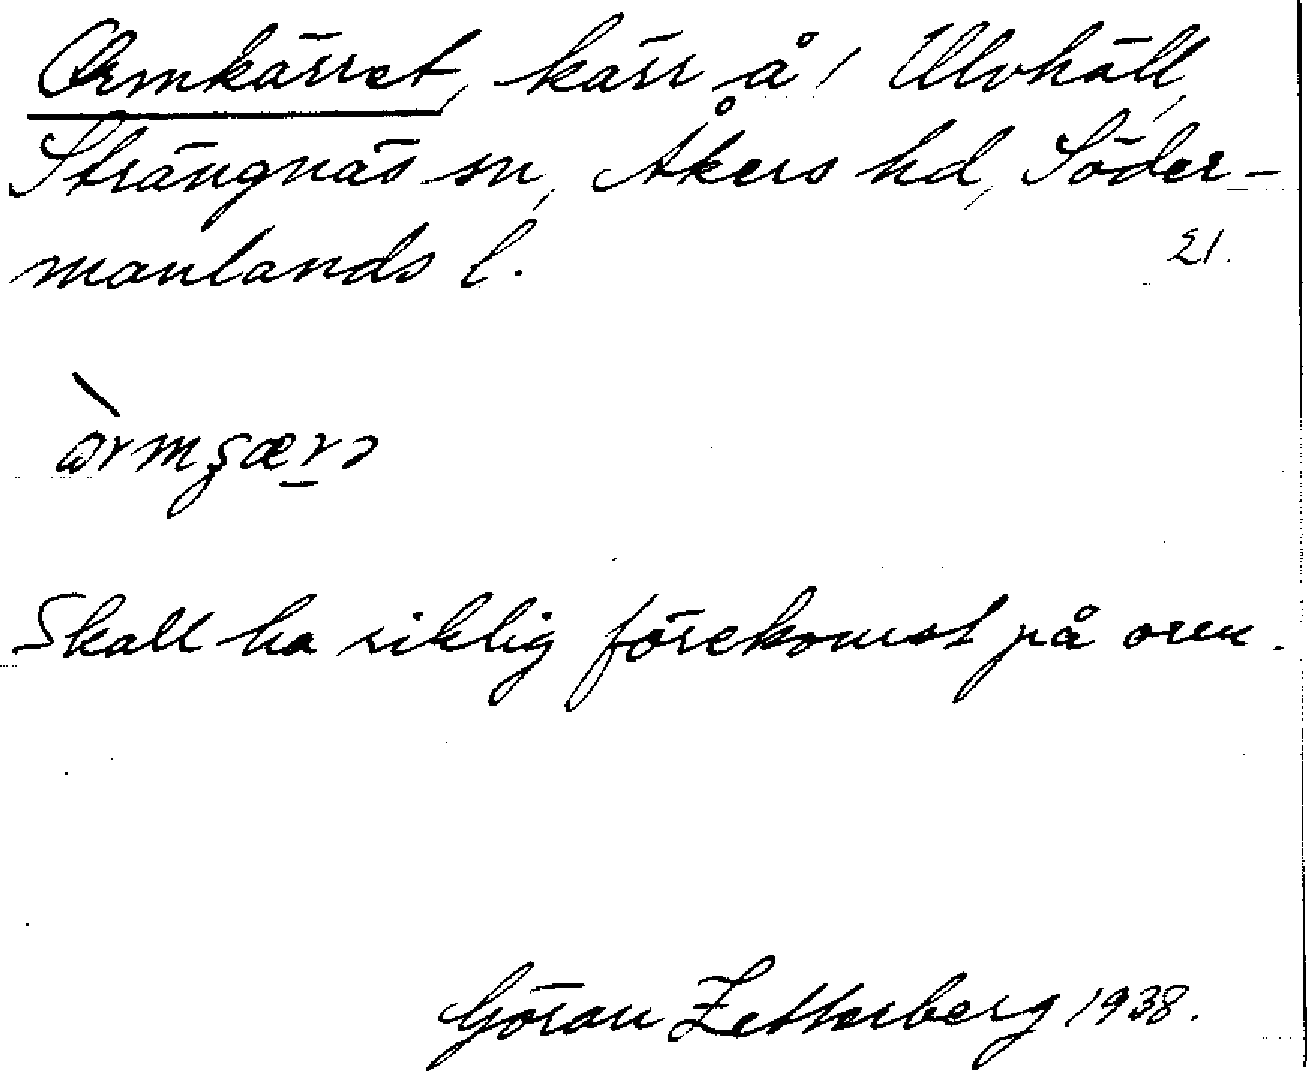 Ormkärret, kärr å 1 Ulvhäll,
Strängnäs sn, Åkers hd, Söder-
manlands l.
21.
Skall ha riklig förekomst på orm.
Göran Zetterberg 1938.